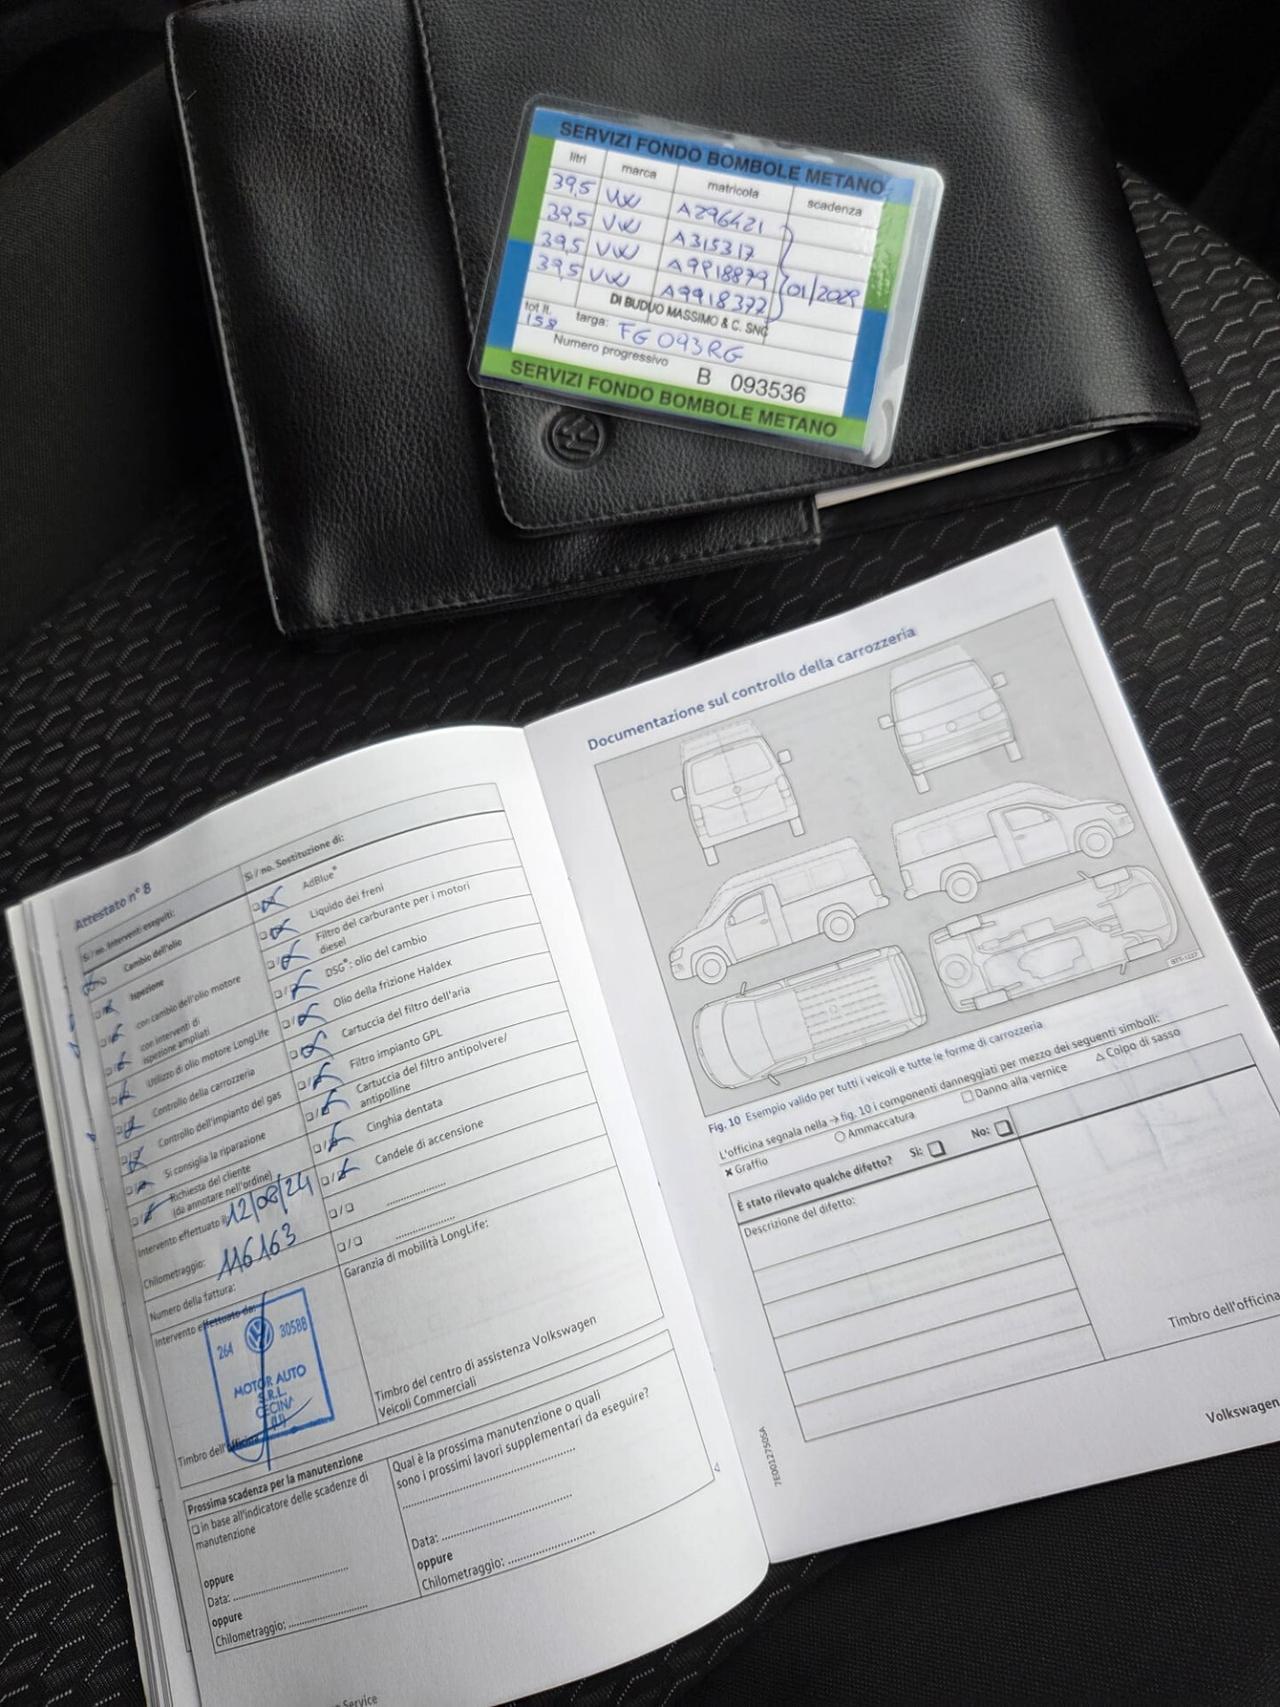 SERVIZI FONDO BOMBOLE METANO
litri marca matricola scadenza
39,5 VW A296421
39,5 VW A315317
39,5 VW A9918879
39,5 VW A9918377
01/2029
DI BUDUO MASSIMO & C. SNC
tot lt. 158 targa: FG 093RG
Numero progressivo B 093536
SERVIZI FONDO BOMBOLE METANO
Attestato n° 8
Sì / no. Interventi eseguiti:
Cambio dell'olio
Ispezione
con cambio dell'olio motore
con interventi di
ispezione ampliati
Utilizzo di olio motore LongLife
Controllo della carrozzeria
Controllo dell'impianto del gas
Si consiglia la riparazione
Richiesta del cliente
(da annotare nell'ordine)
Intervento effettuato il: 12/08/24
Chilometraggio: 116163
Numero della fattura:
Intervento effettuato da:
264 30588
MOTOR AUTO
S.R.L.
CECINA
(LI)
Timbro dell'officina
Sì / no. Sostituzione di:
AdBlue®
Liquido dei freni
Filtro del carburante per i motori
diesel
DSG®: olio del cambio
Olio della frizione Haldex
Cartuccia del filtro dell'aria
Filtro impianto GPL
Cartuccia del filtro antipolvere/
antipolline
Cinghia dentata
Candele di accensione
Garanzia di mobilità LongLife:
Timbro del centro di assistenza Volkswagen
Veicoli Commerciali
Prossima scadenza per la manutenzione
in base all'indicatore delle scadenze di
manutenzione
oppure
Data:
oppure
Chilometraggio:
Qual è la prossima manutenzione o quali
sono i prossimi lavori supplementari da eseguire?
Data:
oppure
Chilometraggio:
Service
Documentazione sul controllo della carrozzeria
BTT-1227
Fig. 10 Esempio valido per tutti i veicoli e tutte le forme di carrozzeria
L'officina segnala nella → fig. 10 i componenti danneggiati per mezzo dei seguenti simboli:
✖ Graffio ○ Ammaccatura □ Danno alla vernice △ Colpo di sasso
È stato rilevato qualche difetto? Sì: No:
Descrizione del difetto:
Timbro dell'officina
7E0012750SA
Volkswagen